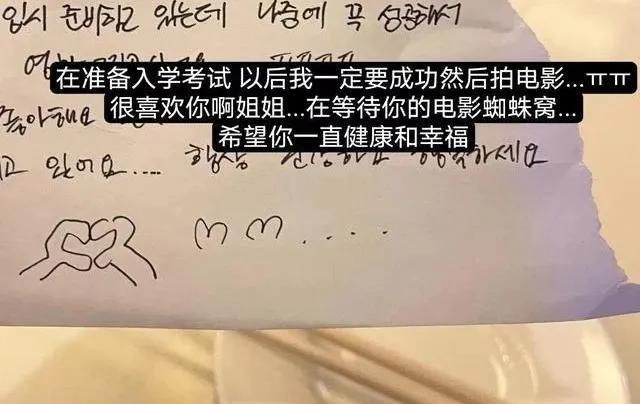 입시 준비하고 있는데 나중에 꼭 성공해서
在准备入学考试 以后我一定要成功然后拍电影...ㅠㅠ
很喜欢你啊姐姐...在等待你的电影蜘蛛窝...
希望你一直健康和幸福
좋아해요
고 있어요.... 항상 건강하고 행복하세요